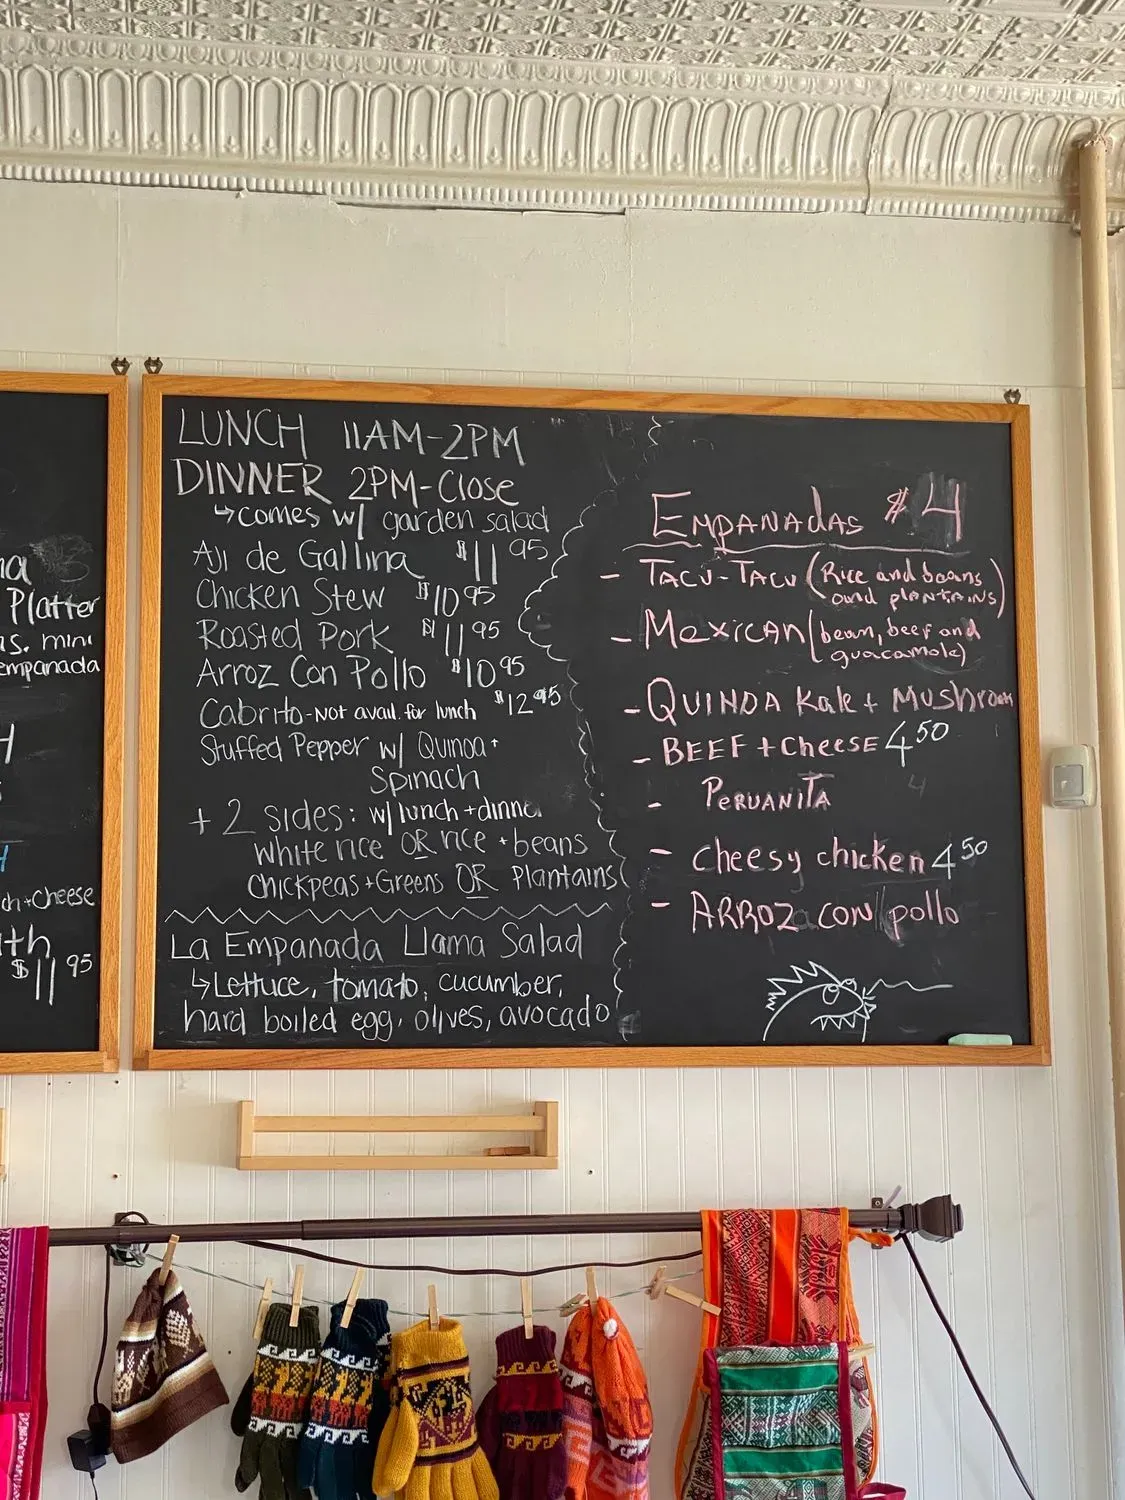 Platter
mini
empanada
ch+Cheese
$11 95
LUNCH 11AM-2PM
DINNER 2PM-Close
↳comes w/ garden salad
Aji de Gallina $11 95
Chicken Stew $10 95
Roasted Pork $11 95
Arroz Con Pollo $10 95
Cabrito-Not avail. for lunch $12 95
Stuffed Pepper w/ Quinoa+
Spinach
+ 2 sides: w/ lunch+dinner
white rice OR rice +beans
chickpeas+Greens OR Plantains
La Empanada Llama Salad
↳Lettuce, tomato, cucumber,
hard boiled egg, olives, avocado
EMPANADAS $4
- TACU-TACU (Rice and beans
and PLANTAINS)
- MEXICAN (bean, beef and
guacamole)
- QUINOA Kale + MUSHROOM
- BEEF + cheese 4 50
- PERUANITA
- cheesy chicken 4 50
- ARROZ CON pollo